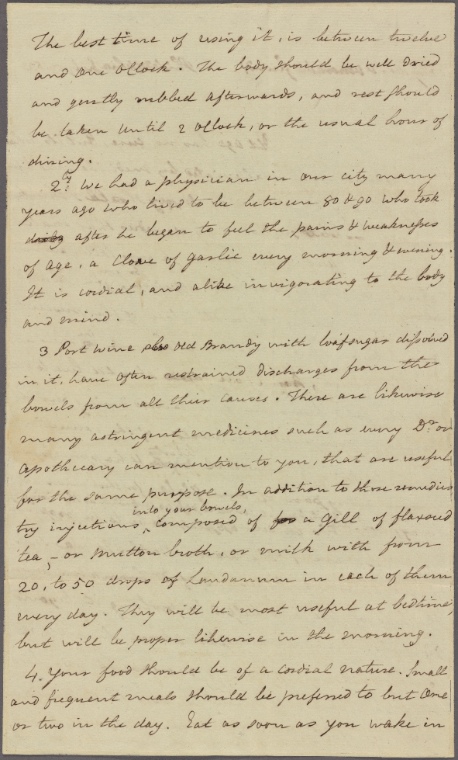 The best time of using it, is between twelve
and one oClock. The body should be well dried
and gently rubbed afterwards, and rest should
be taken until 2 oClock, or the usual hour of
dining.
2ly We had a physician in our city many
years ago who lived to be between 80 & 90 who took
after he began to feel the pains & weaknesses
of age, a Clove of garlic every morning & evening.
It is cordial, and alike invigorating to the body
and mind.
3 Port wine old Brandy with loaf sugar dissolved
in it, have often restrained discharges from the
bowels from all their causes. There are likewise
many astringent medicines such as every Dr. or
apothecary can mention to you, that are useful
for the same purpose. In addition to those remedies
into your bowels,
try injections composed of a Gill of flaxseed
tea, – or mutton broth, or milk with from
20, to 50 drops of Laudanum in each of them
every day. They will be most useful at bedtime,
but will be proper likewise in the morning.
4. Your food should be of a cordial nature. Small
and frequent meals should be preferred to but one
or two in the day. Eat as soon as you wake in